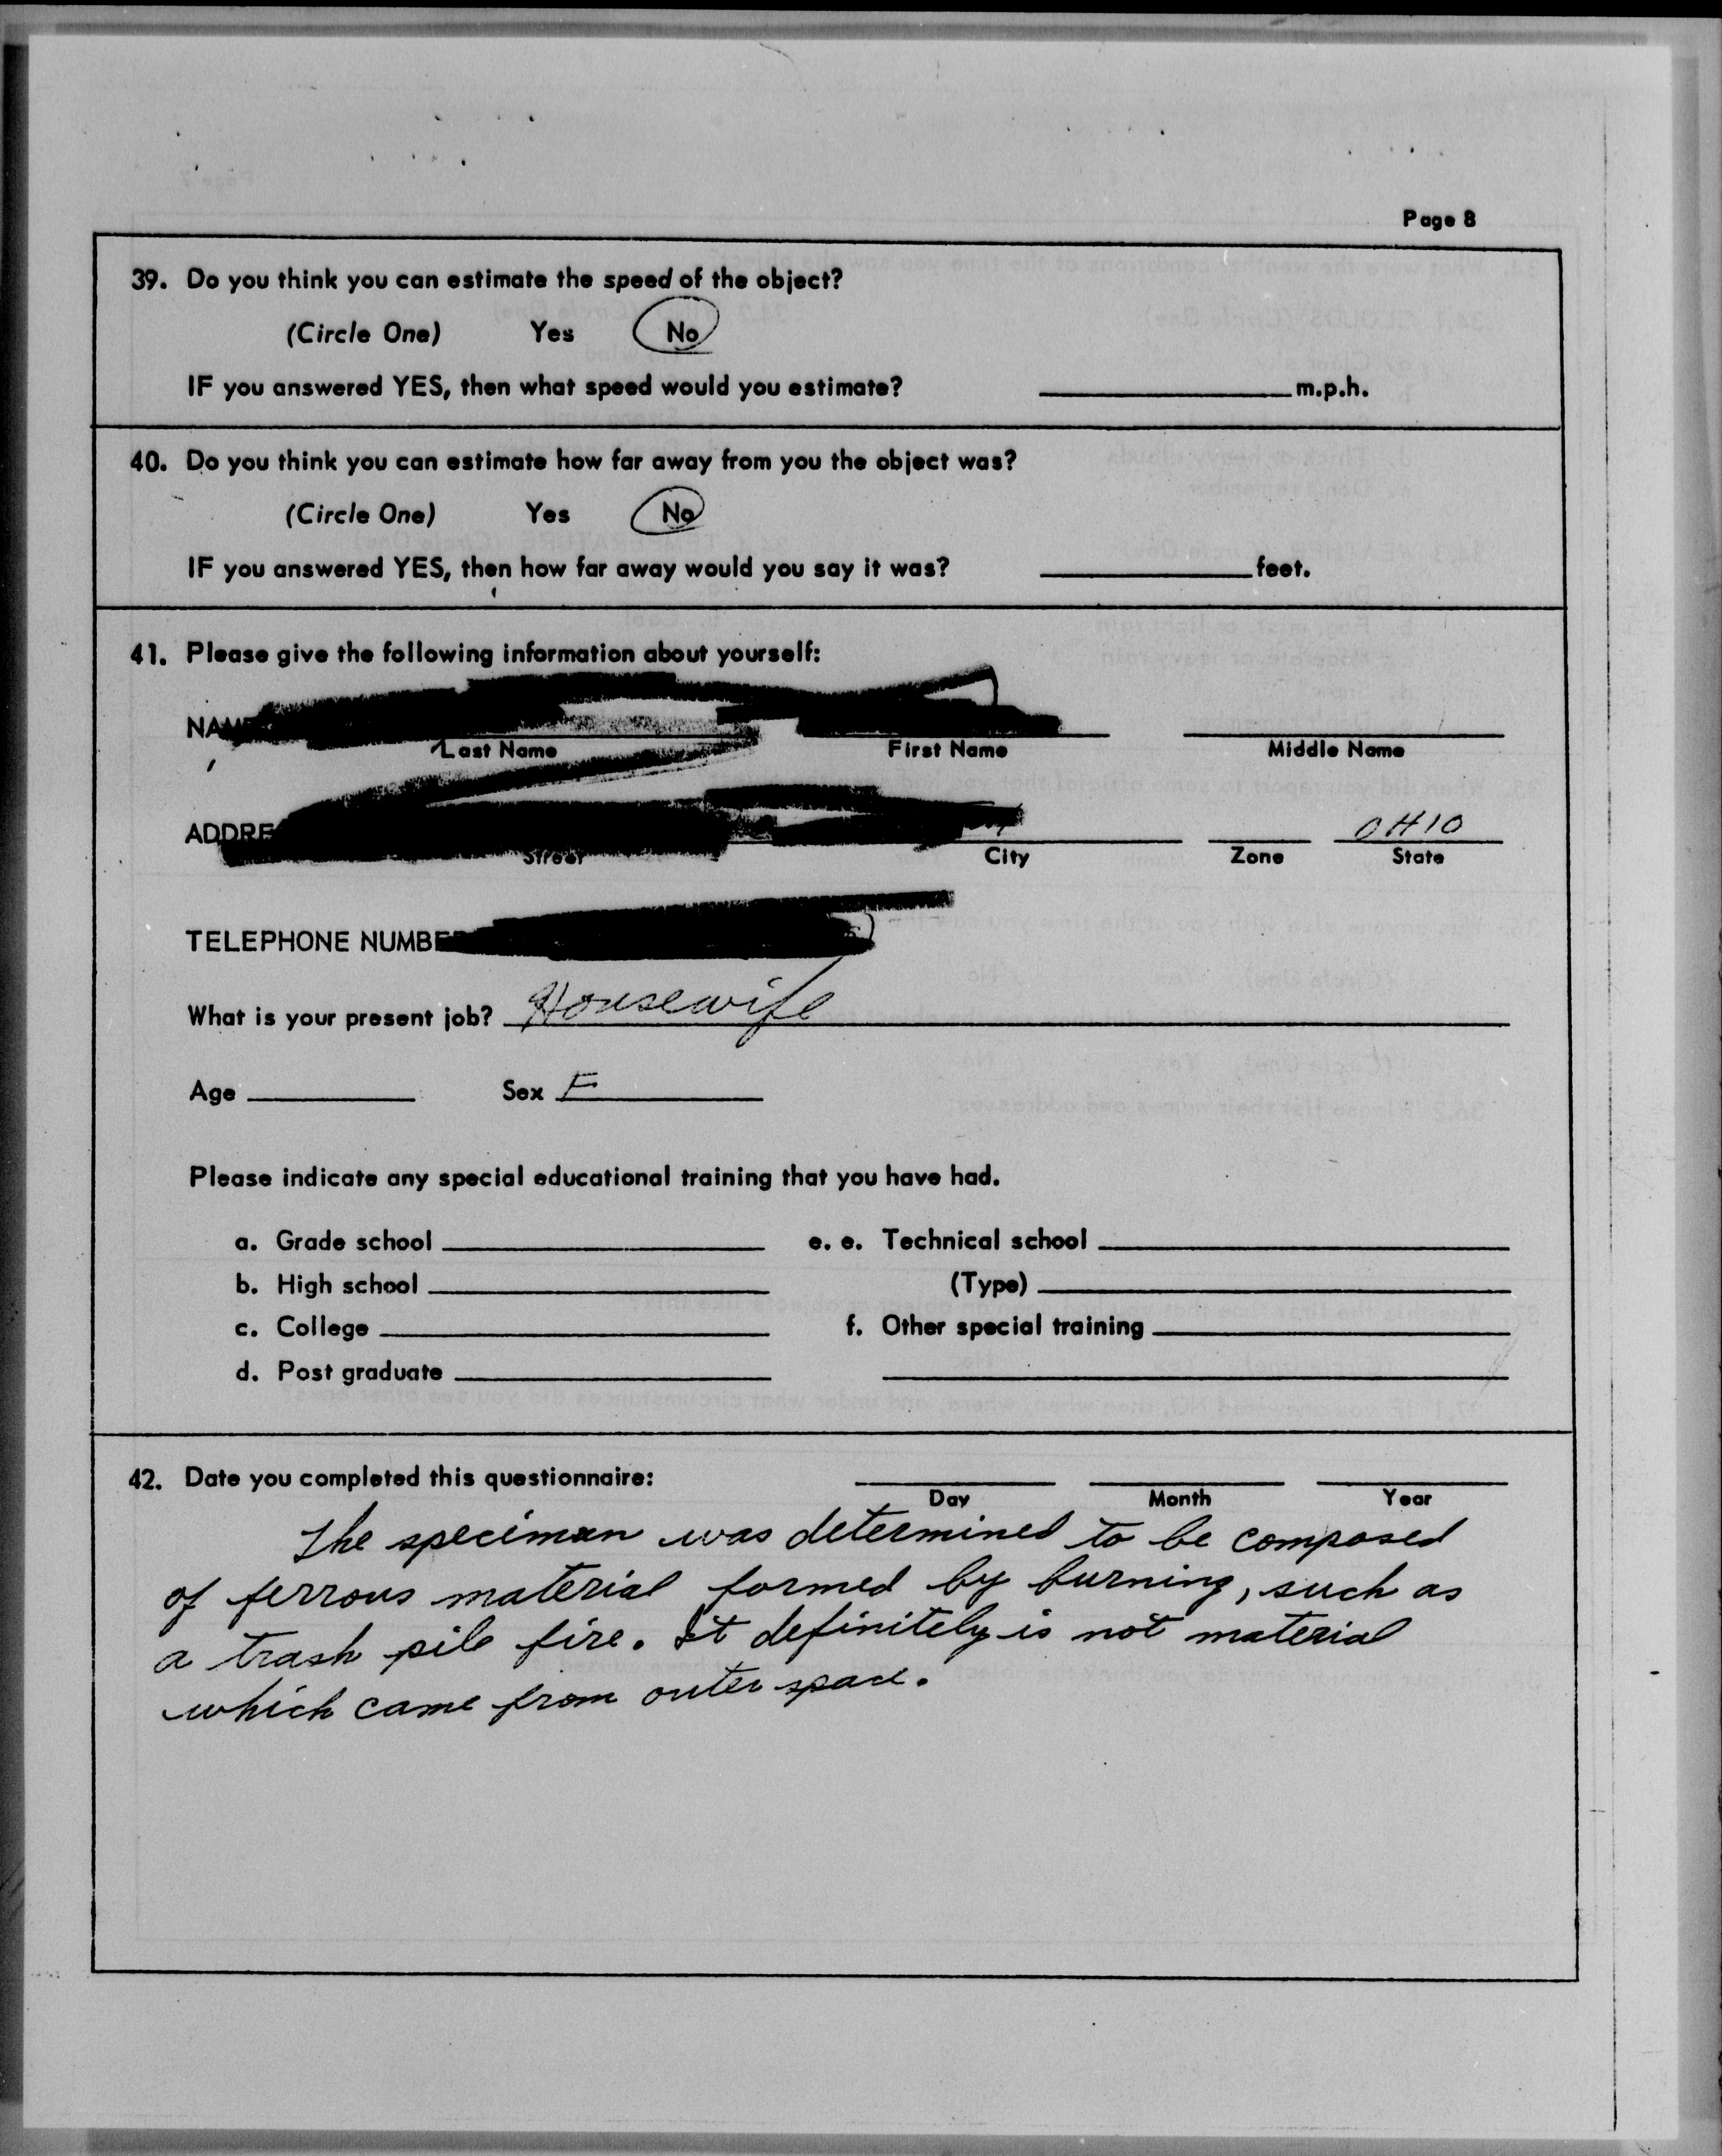 Page 8
39. Do you think you can estimate the speed of the object?
(Circle One) Yes No
IF you answered YES, then what speed would you estimate? m.p.h.
40. Do you think you can estimate how far away from you the object was?
(Circle One) Yes No
IF you answered YES, then how far away would you say it was? feet.
41. Please give the following information about yourself:
NAME
Last Name First Name Middle Name
ADDRE OHIO
Street City Zone State
TELEPHONE NUMBER
What is your present job? Housewife
Age Sex F
Please indicate any special educational training that you have had.
a. Grade school e. e. Technical school
b. High school (Type)
c. College f. Other special training
d. Post graduate
42. Date you completed this questionnaire:
Day Month Year
The specimen was determined to be composed
of ferrous material formed by burning, such as
a trash pile fire. It definitely is not material
which came from outer space.